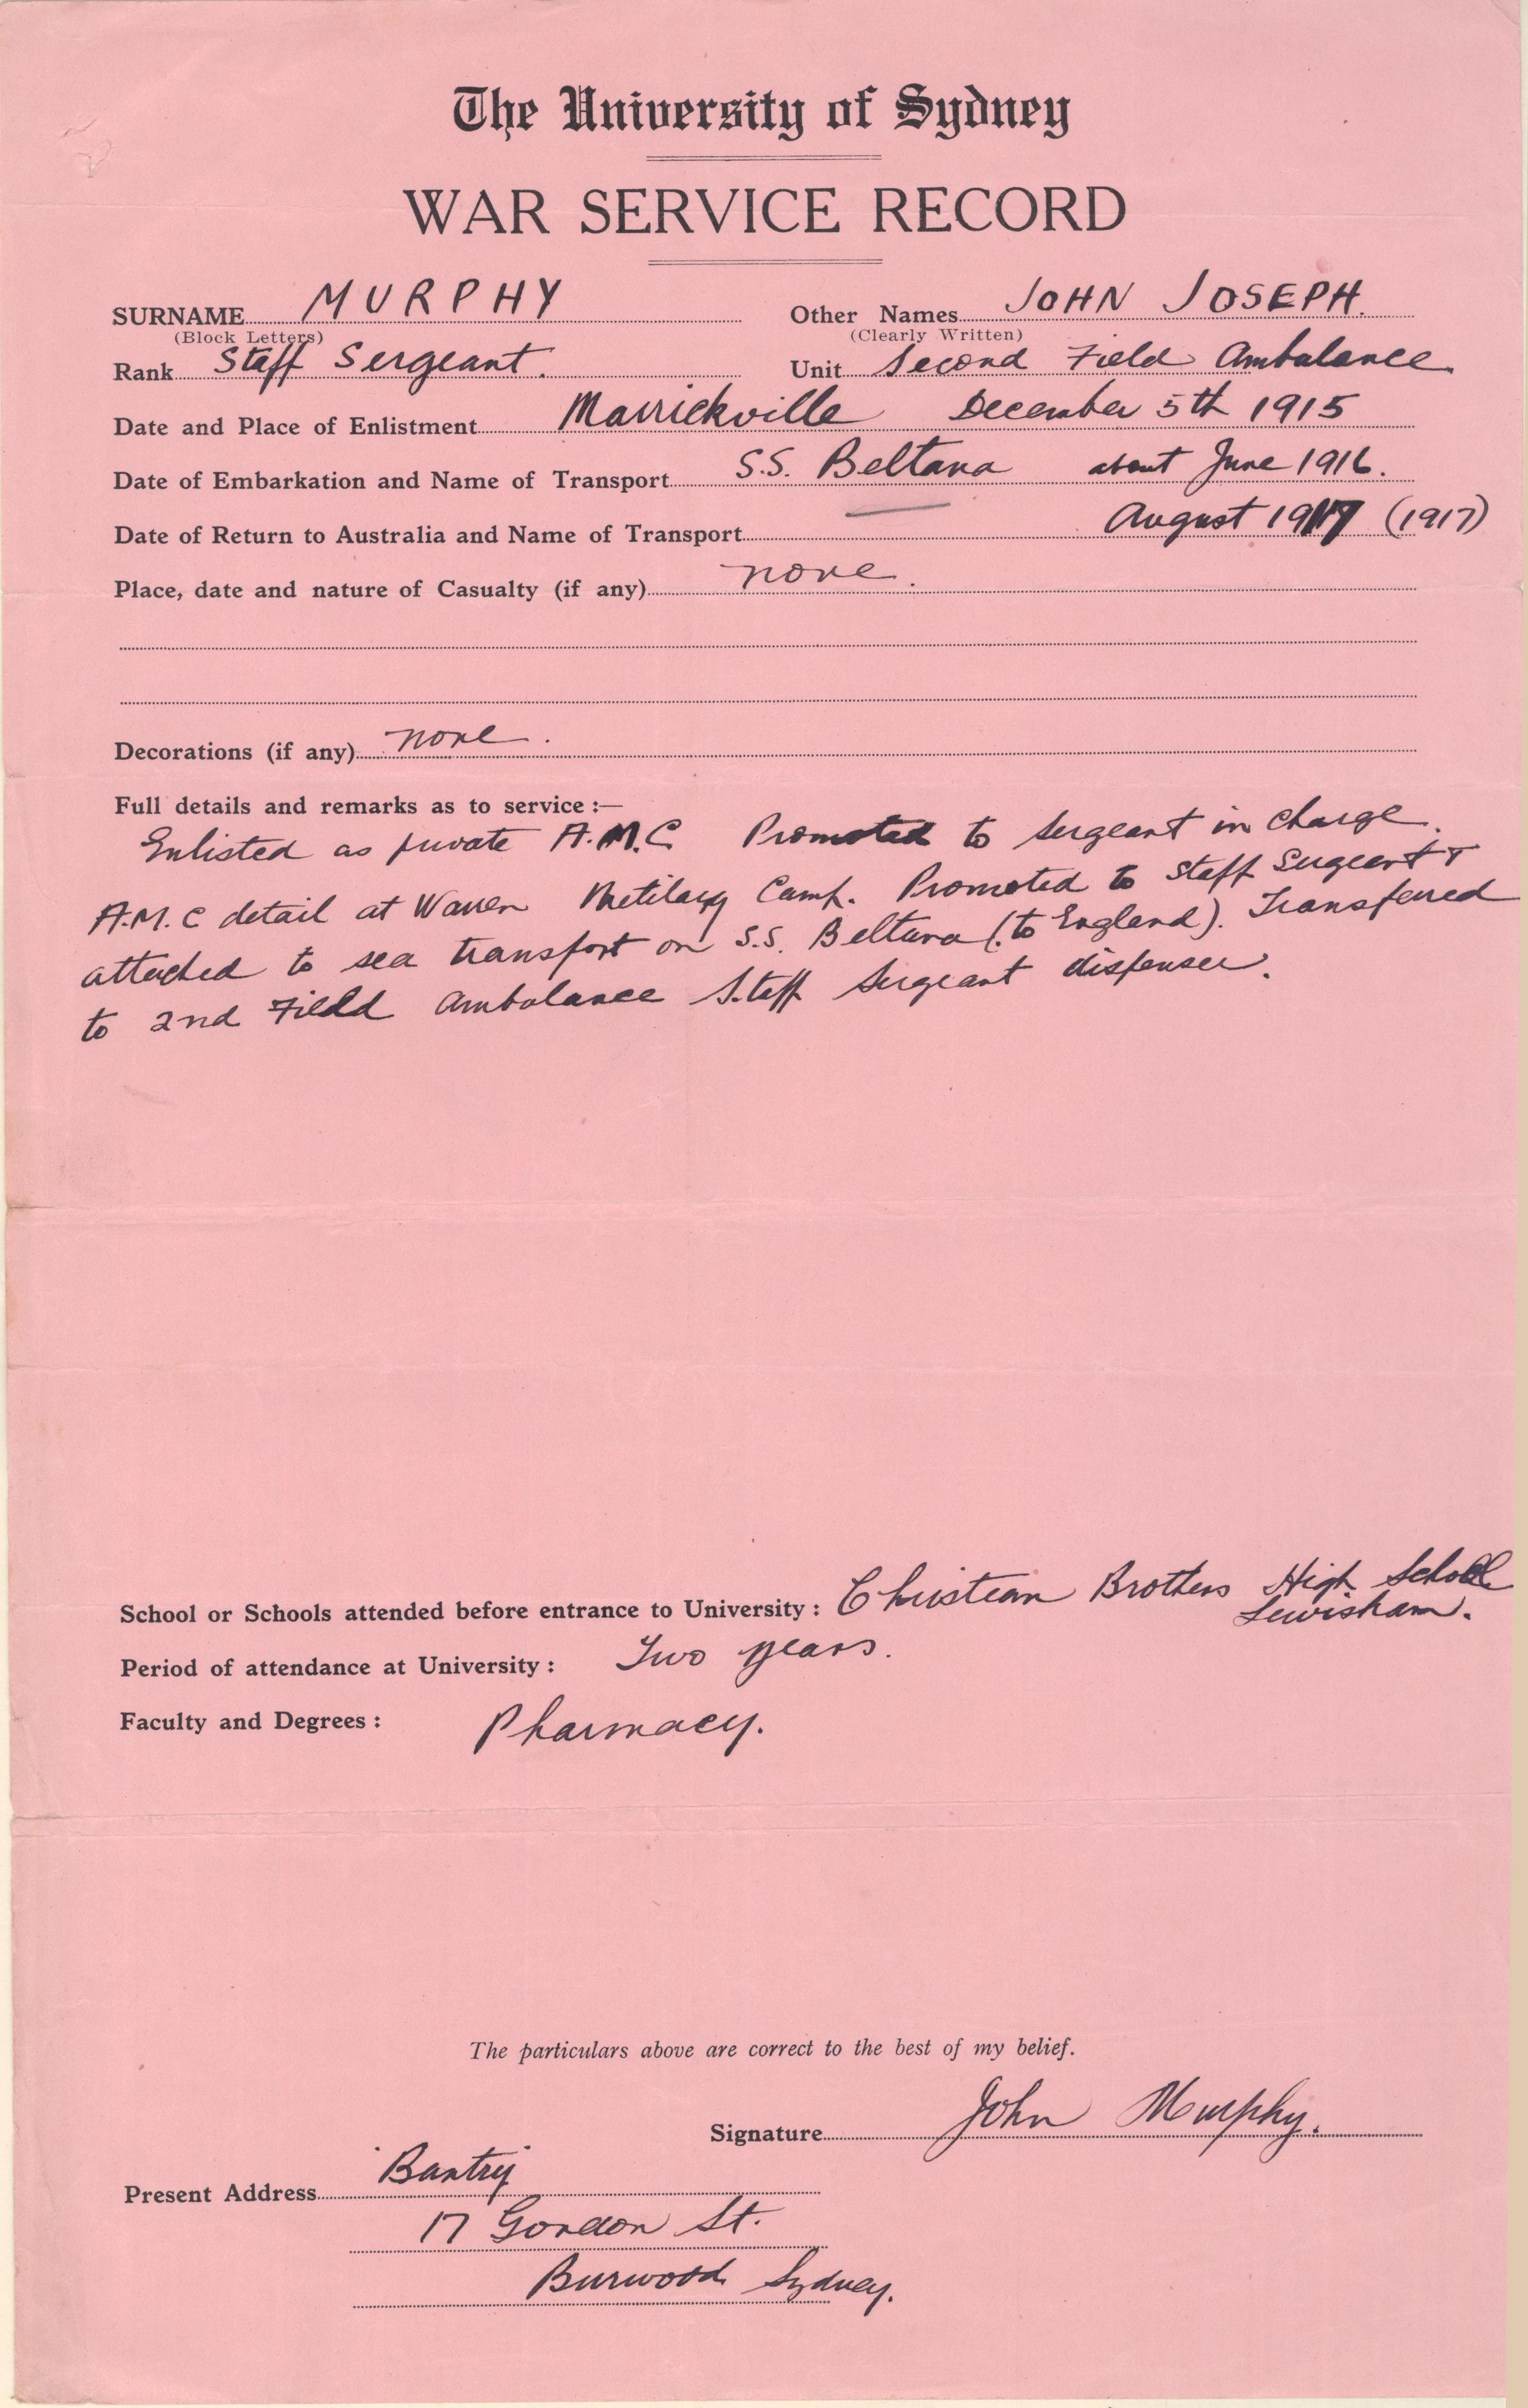 The University of Sydney
WAR SERVICE RECORD
SURNAME MURPHY Other Names JOHN JOSEPH.
(Block Letters) (Clearly Written)
Rank Staff Sergeant. Unit Second Field Ambulance.
Date and Place of Enlistment Marrickville December 5th 1915
Date of Embarkation and Name of Transport S.S. Beltana about June 1916.
Date of Return to Australia and Name of Transport — August 1917 (1917)
Place, date and nature of Casualty (if any) none.
Decorations (if any) none.
Full details and remarks as to service :—
Enlisted as private A.M.C Promoted to Sergeant in charge.
A.M.C detail at Warren Military Camp. Promoted to Staff Sergeant &
attached to sea transport on S.S. Beltana (to England). Transferred
to 2nd Field Ambulance Staff Sergeant dispenser.
School or Schools attended before entrance to University : Christian Brothers High School
Lewisham.
Period of attendance at University : Two years.
Faculty and Degrees : Pharmacy.
The particulars above are correct to the best of my belief.
Signature John Murphy.
Present Address 'Bantry'
17 Gordon St.
Burwood Sydney.